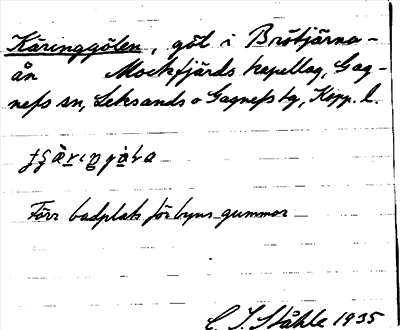 Käringgölen, göl i Brötjärna-
ån Mockfjärds kapellag, Gag-
nefs sn, Leksands o Gagnefs tg, Kopp. l.
Förr badplats för byns gummor
C. I. Ståhle 1935